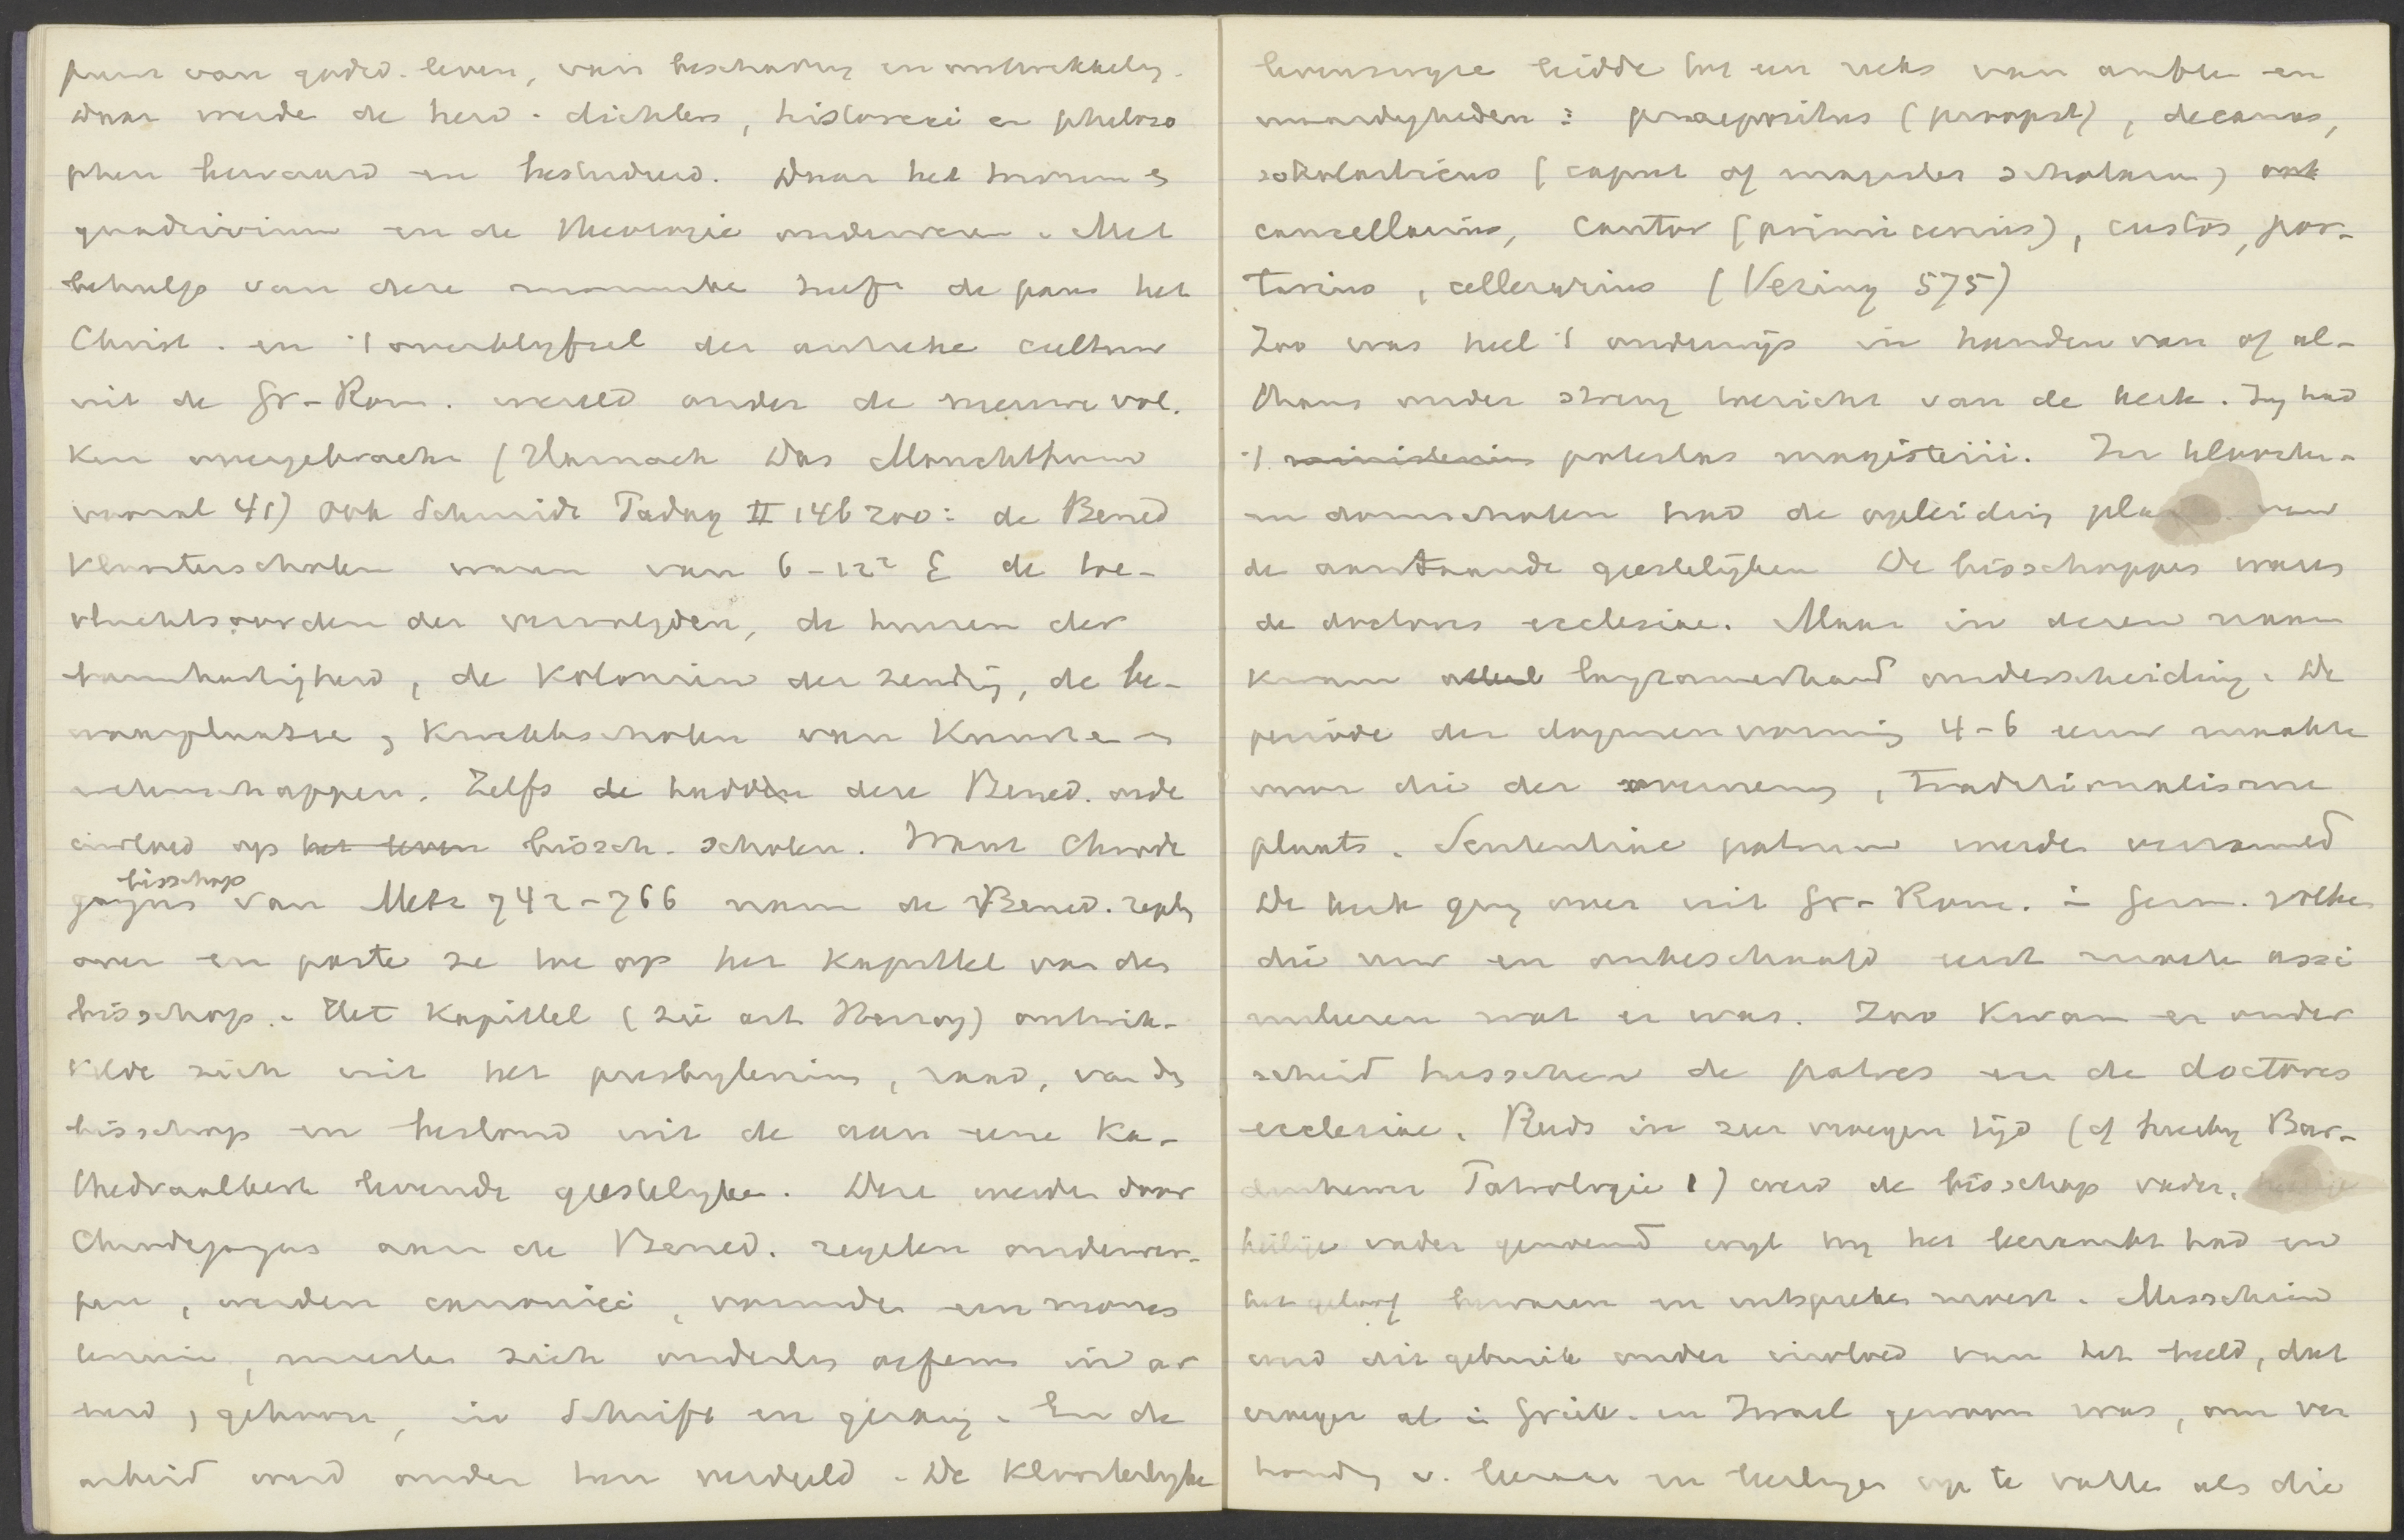 punt van godsd. leven, van beschaving en ontwikkeling.
Daar werden de heid. dichters, historici en philoso
phen bewaard en bestudeerd. Daar het trivium &
quadrivium en de theologie onderwezen. Met
behulp van deze monniken heeft de paus het
Christ. en 't overblijfsel der antieke cultuur
uit de Gr-Rom. wereld onder de nieuwe vol-
ken overgebracht (Harnack Das Mönchthum
vooral 41) Ook Schmidt Padag II 146 200: de Bened
Kloosterscholen waren van 6-12e E de toe-
vluchtsoorden der vervolgden, de huizen der
barmhartigheid, de Kolonien der zending, de be-
waarplaatsen, Kweekscholen van Kunsten en
wetenschappen. Zelfs de hadden deze Bened. orde
invloed op het leven bissch. scholen. Want Chrode
gangus bisschop van Metz 742-766 nam de Bened. regels
over en paste ze toe op het Kapittel van den
bisschop. Het Kapittel (zie art Herzog) ontwik-
kelde zich uit het presbyterium, raad, van den
bisschop en bestond uit de aan eene Ka-
thedraalkerk levende geestelyken. Deze werden door
Chrodegangus aan de Bened. regelen onderwor-
pen, werden canonici, vormden een monas
terium, moesten zich onderling oefenen in ar
moed, gehoorz, in Schrift en gezang. En de
arbeid werd onder hen verdeeld. De Kloosterlyke
levenswyze leidde tot een reeks van ambten en
waardigheden: praepositus (proopst), decanus,
scholasticus (caput of magister scholarum) ook
cancellarius, Cantor (primicerius), custos, por-
tarius, cellerarius (Vering 575)
Zoo was heel 't onderwijs in handen van of al-
thans onder streng toezicht van de kerk. Zy had
't ministerium potestas magisterii. In klooster-
en domscholen had de opleiding plaats van
de aanstaande geestelijken De bisschoppen waren
de doctores ecclesiae. Maar in dezen naam
kwam allengs langzamerhand onderscheiding. De
periode der dogmenvorming 4-6 eeuw maakte
voor die der overneming, traditionalisme
plaats. Sententiae patrum werden verzameld
De kerk ging over uit Gr-Rom. in Germ. volken
die ruw en onbeschaafd eerst moesten assi
mileren wat er was. Zoo Kwam er onder
scheid tusschen de patres en de doctores
ecclesiae. Reeds in zeer vroegen tijd (cf Bar-
denhewer Patrologie 1) werd de bisschop vader,
heilige vader genoemd wyl hy het leerambt had en
het geloof bewaren en uitspreken moest. Misschien
werd dit gebruik onder invloed van het beeld, dat
vroeger al in Griek. en Israel gewoon was, om ver
houding v. leeraar en leerlingen op te vatten als die